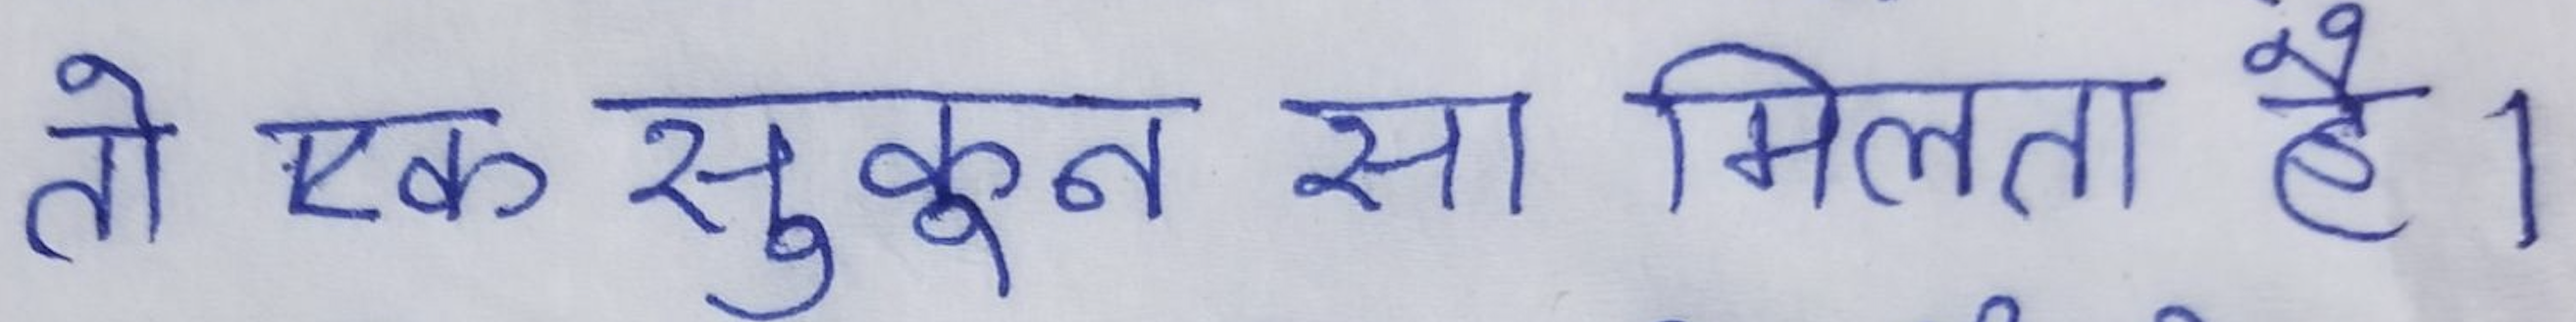 तो एक सुकून सा मिलता है।